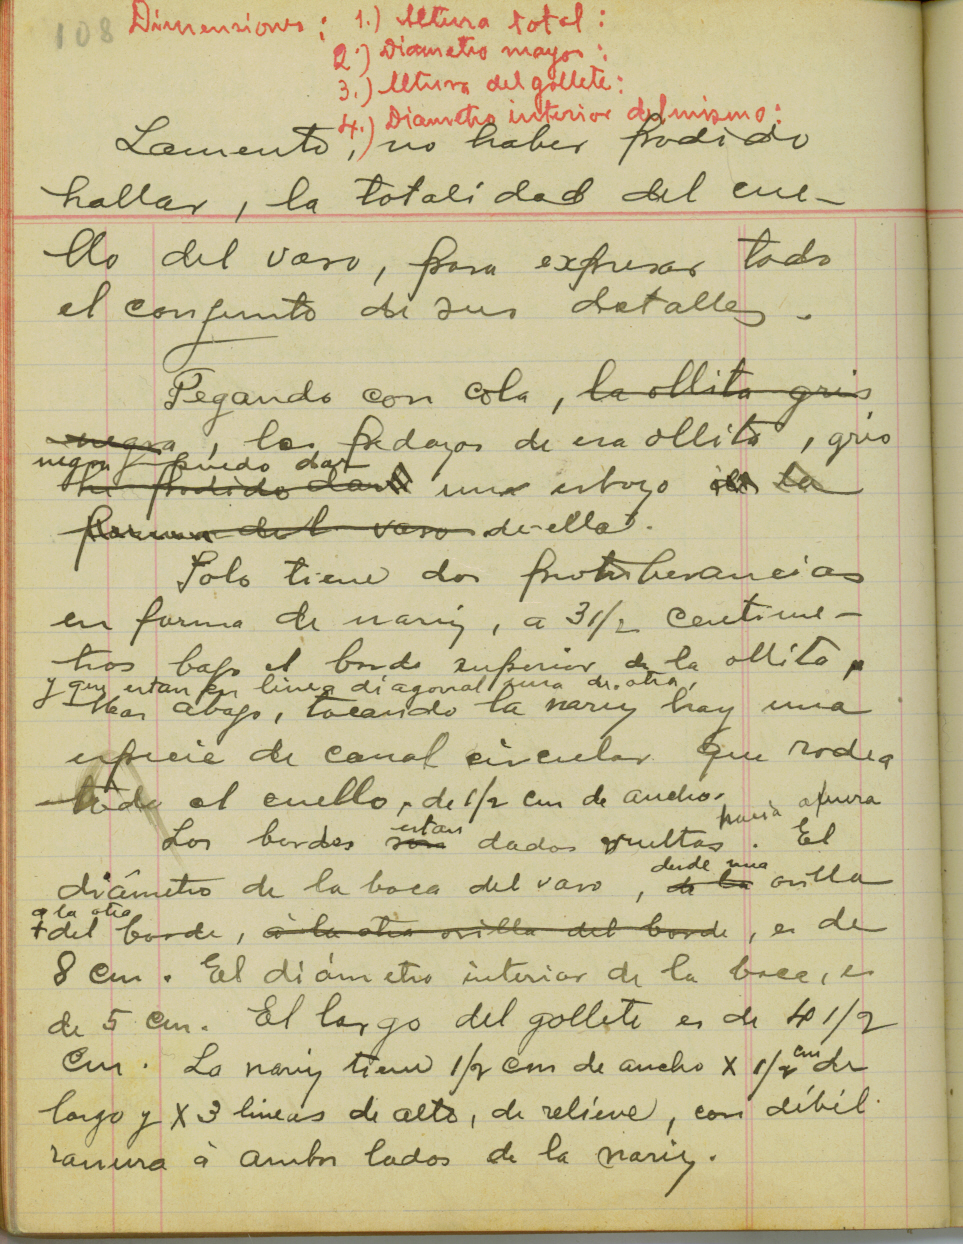 108
Dimensiones: 1.) Altura total:
2.) Diametro mayor:
3.) Altura del gollete:
4.) Diametro interior del mismo:
Lamento, no haber podido
hallar, la totalidad del cue-
llo del vaso, para expresar todo
el conjunto de sus detalles.
Pegando con cola, la ollita gris
negra, los pedazos de esa ollita, gris
negra puedo dar
he podido dar un esbozo de la
forma del vaso de ella.
Solo tiene dos protuberancias
en forma de nariz, a 3 1/2 centime-
tros bajo el borde superior de la ollita,
y que estan en linea diagonal una de otra,
Mas abajo, tocando la nariz hay una
especie de canal circular que rodea
todo el cuello, de 1/2 cm de ancho.
estan hacia afuera
Los bordes son dados vueltas. El
desde una
diámetro de la boca del vaso, de la orilla
a la otra
+ del borde, à la otra orilla del borde, es de
8 cm. El diámetro interior de la boca, es
de 5 cm. El largo del gollete es de 4 1/2
cm. La nariz tiene 1/2 cm de ancho X 1/2 cm de
largo y X 3 lineas de alto, de relieve, con débil
ranura à ambos lados de la nariz.